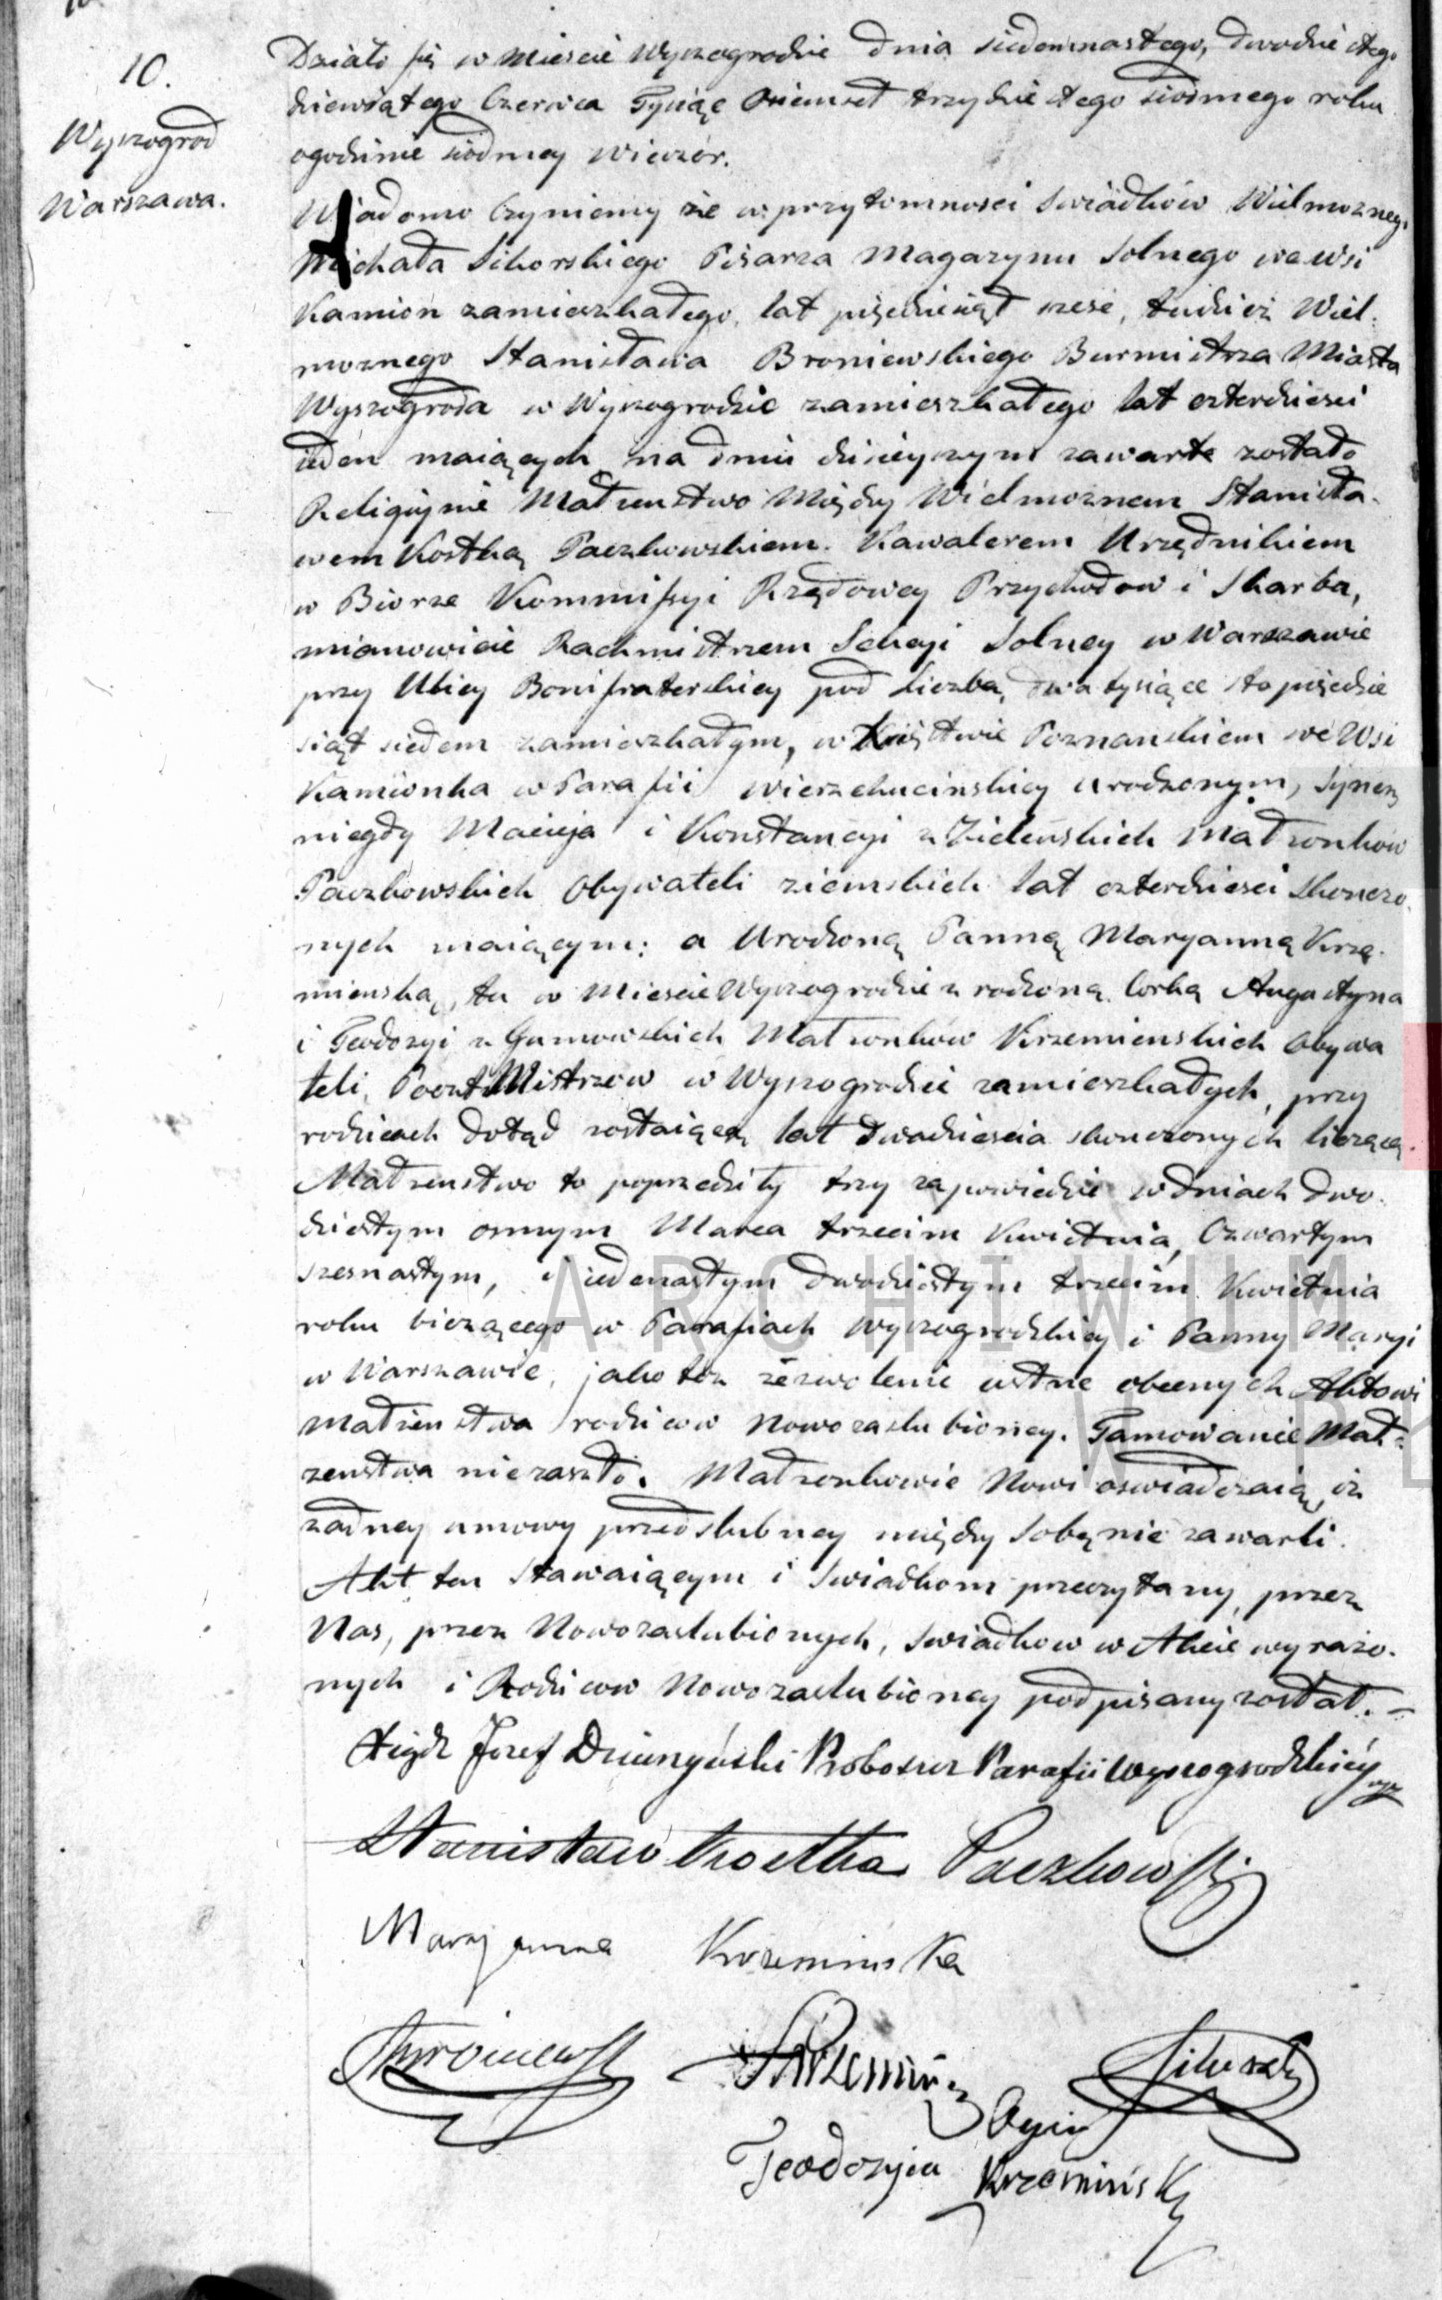 10.
Wyszogrod
Warszawa.
Działo się w Mieście Wyszogrodzie dnia siedemnastego, dwudziestego
dziewiątego Czerwca Tysiąc Osiemset trzydziestego siodmego roku
ogodzinie siodmey wieczor.
Wiadomo czyniemy że w przytomności Swiadków Wielmoznego
Michała Sikorskiego Pisarza Magazynu Solnego we wsi
Kamion zamieszkałego, lat pięćdziesiąt sześć, tudzież Wiel-
moznego Stanisława Broniewskiego Burmistrza Miasta
Wyszogroda w Wyszogrodzie zamieszkałego lat czterdzieści
ieden maiących, na dniu dzisieyszym zawarte zostało
Religijnie Małżenstwo Między Wielmoznem Stanisła-
wem Kostką Paczkowskiem. Kawalerem Urzędnikiem
w Biorze Kommissyi Rządowey Przychodow i Skarbu,
mianowicie Rachmistrzem Sekcyi Solney w Warszawie
przy Ulicy Bonifraterskiey pod liczbą, dwa tysiące sto pięćdzie
siąt siedem zamieszkałym, w Xsięstwie Poznanskiem we Wsi
Kamionka w Parafii Wierzchucińskiey urodzonym, synem
niegdy Macieja i Konstancyi z Zieleńskich Małzonkow
Paczkowskich Obywateli ziemskich lat czterdziesci skonczo-
nych maiącym; a Urodzoną Panną Maryanną Krze-
mienską, tu w Miescie Wyszogrodzie urodzoną Corką Augustyna
i Teodozyi z Gumowskich Małzonków Krzemienskich Obywa
teli, PocztMistrzow w Wyszogrodzie zamieszkałych, przy
rodzicach dotąd zostaiącą, lat dwadziescia skonczonych liczącą.
Małzenstwo to poprzedziły trzy zapowiedzie w dniach dwu-
dziestym osmym Marca trzecim Kwietnia, Czwartym
szesnastym, i iedenastym dwudziestym trzecim Kwietnia
roku bieżącego w Parafiach Wyszogrodzkiey i Panny Maryi
w Warszawie, jako też zezwolenie ustne obecnych Aktowi
Małżenstwa rodziców Nowozaslubioney. Tamowanie Mał-
zenstwa niezaszło. Małzonkowie Nowi oswiadczaią, iż
zadney umowy przedslubney między sobą nie zawarli.
Akt ten stawaiącym i Swiadkom przeczytany, przez
Nas, przez Nowozaslubionych, Swiadkow w Akcie wyrażo-
nych i Rodzicow Nowozaslubioney podpisany został. –
Xiądz Jozef Proboszcz Parafii Wyszogrodzkiey
Stanisław Kostka Paczkowski
Maryanna Krzeminska
Broniewski Krzemiński Sikorski
Oyciec
Teodozyia Krzemińska
ARCHIWUM